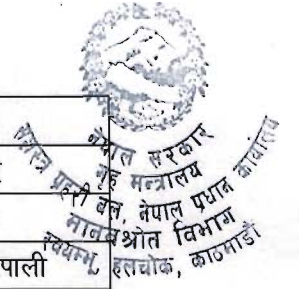 नेपाल सरकार
गृह मन्त्रालय
सशस्त्र प्रहरी बल, नेपाल प्रधान कार्यालय
मानव श्रोत विभाग
स्वयम्भु, हलचोक, काठमाडौं
पाली